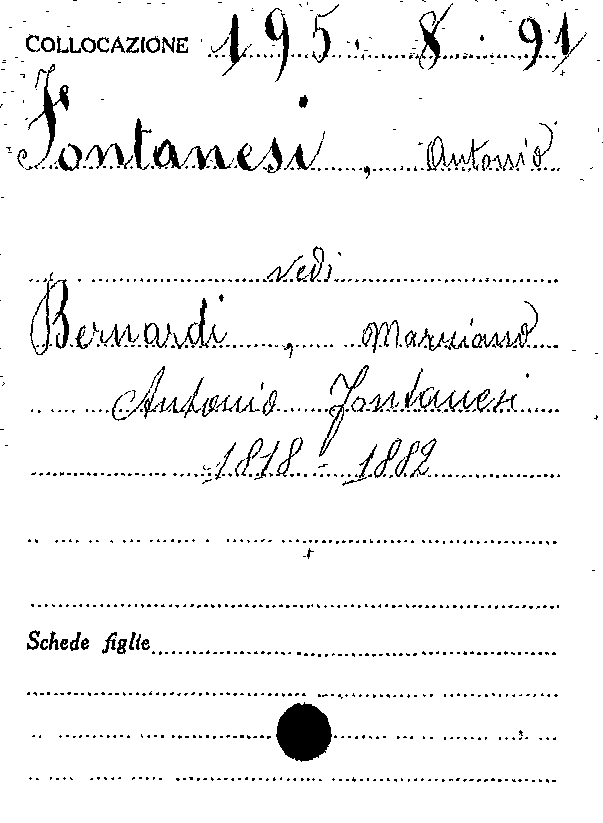 COLLOCAZIONE 195. 8. 91
Fontanesi, Antonio
vedi
Bernardi, Marziano
Antonio Fontanesi
1818 - 1882
Schede figlie